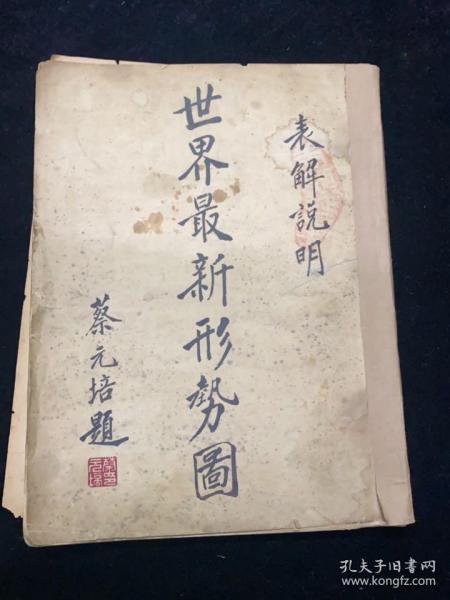 表解説明
世界最新形勢圖
蔡元培題
孔夫子旧书网
www.kongfz.com